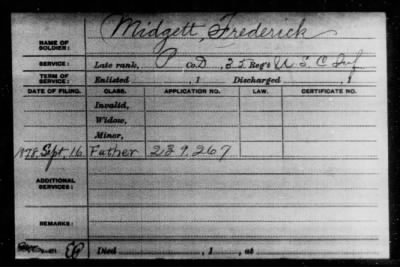 NAME OF SOLDIER: Midgett, Frederick
SERVICE: Late rank, P Co. D, 35 Reg't U S C Inf
TERM OF SERVICE: Enlisted , 1 Discharged , 1
DATE OF FILING. CLASS. APPLICATION NO. LAW. CERTIFICATE NO.
Invalid,
Widow,
Minor,
1878, Sept, 16 Father 239.267
ADDITIONAL SERVICES:
REMARKS:
Died , 1 , at